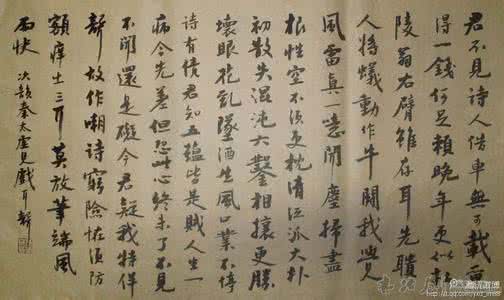 君不見詩人借車無可載留
得一錢何足賴晚年更似杜
陵翁右臂雖存耳先聵
人將蟻動作牛鬪我覺
風雷真一噫聞塵掃盡
根性空不須更枕清流派大朴
初散失混沌六鑿相攘更勝
壞眼花亂墜酒生風口業不停
詩有債君知五蘊皆是賊人生一
病今先差但恐此心終未了不見
不聞還是礙今君疑我特佯
聾故作嘲詩窮險怪須防
額癢出三耳莫放筆端風
雨快 次韻秦太虛見戲耳聾